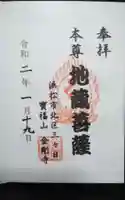 奉拝
本尊
地蔵菩薩
浜松市北区三ヶ日
宝福山
金剛寺
令和二年一月十九日